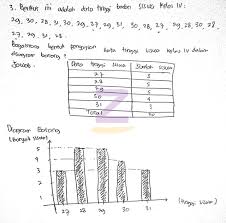 3. Berikut ini adalah data tinggi badan siswa kelas IV:
29, 30, 28, 31, 30, 29, 27, 29, 31, 30, 28, 27, 29, 28, 30, 28
27, 29, 31, 28.
Bagaimana bentuk penyajian data tinggi siswa kelas IV dalam
diagram batang?
Jawab:
Data tinggi siswa | Jumlah siswa
27 | 3
28 | 5
29 | 5
30 | 4
31 | 3
Total
Diagram Batang
(Banyak siswa)
5
4
3
2
1
27 28 29 30 31
(tinggi siswa)